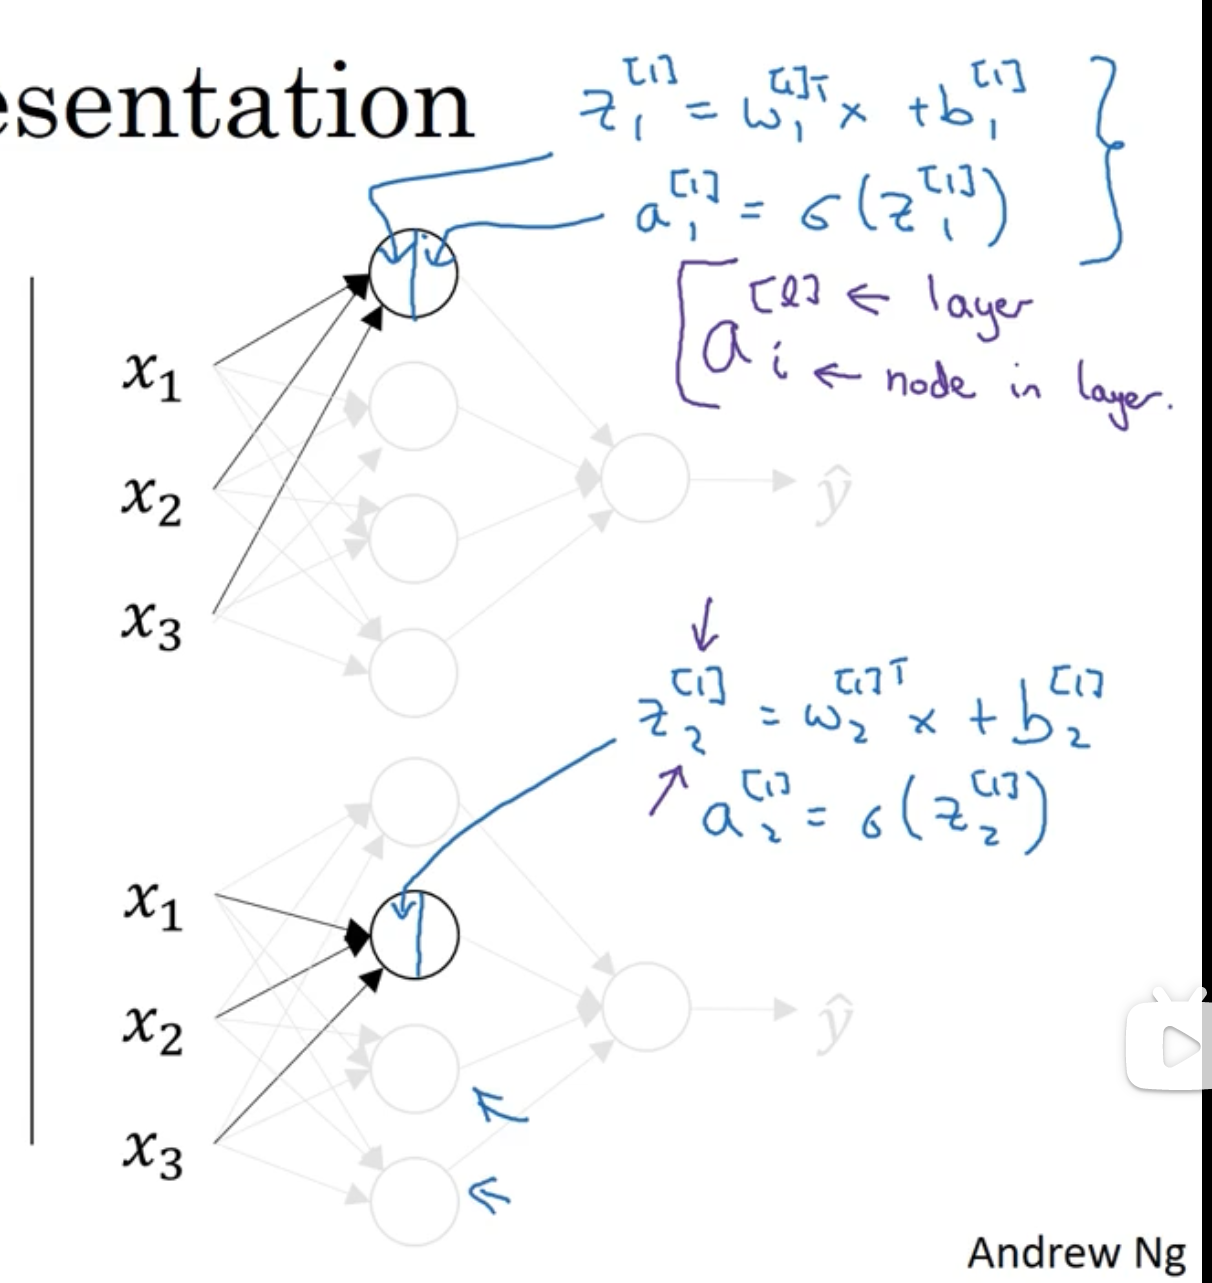 esentation
z₁^[1] = w₁^[1]T x + b₁^[1]
a₁^[1] = σ(z₁^[1])
a_i^[l] ← layer
← node in layer.
x₁
x₂
ŷ
x₃
z₂^[1] = w₂^[1]T x + b₂^[1]
a₂^[1] = σ(z₂^[1])
x₁
x₂
ŷ
x₃
Andrew Ng